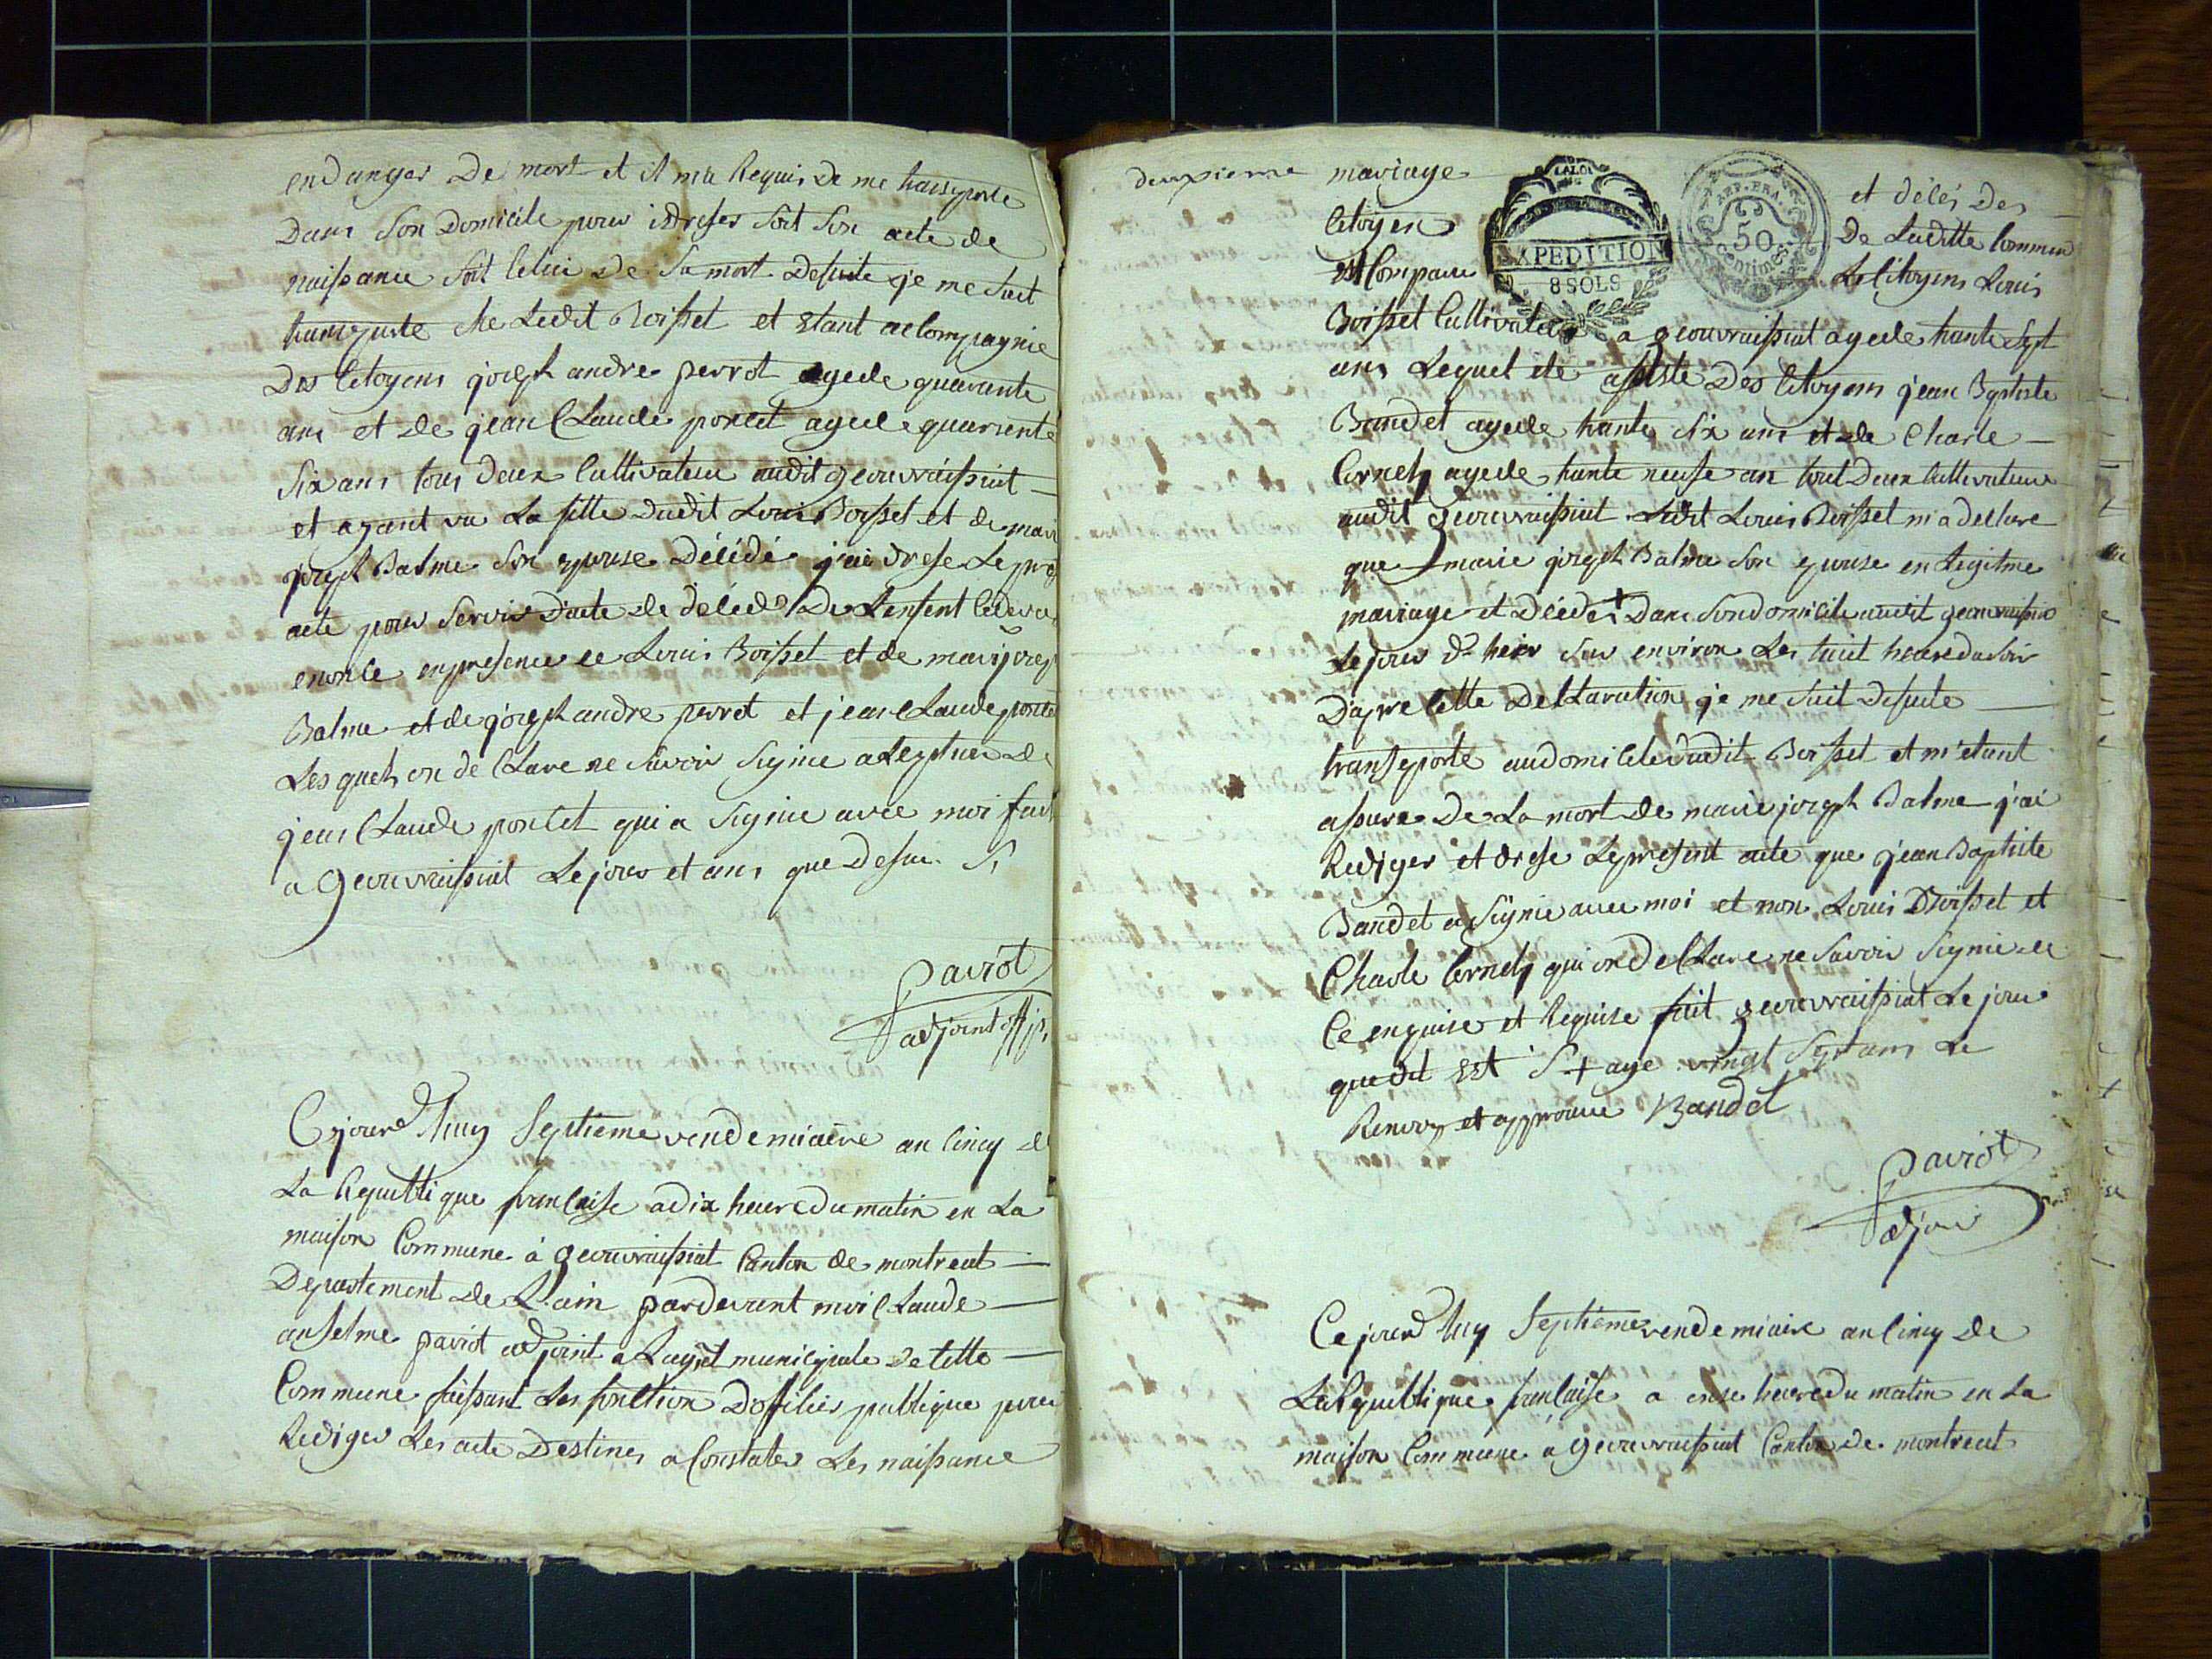 en danger De mort et il ma Requis De me transporte
Dans Son Domicile pour i dreser soit Son acte de
naissance Soit Celui De Sa mort Desuite je me suit
transporte che Ledit Boisset et etant acCompagnie
Des Citoyens joseph andre perrot agede quarante
ans et de jean Claude poncet agede quarente
Six ans tous deux Cultivateur audit geovraissiat
et ayant vu La fille Dudit Louis Boisset et de mari
joseph Balme Son epouse Décédé j'ai drese Le pres
acte pour Servir D'acte de décéd De Lenfent Ci deva
enonce en presence de Louis Boisset et de mari josep
Balme et de joseph andre perrot et jean Claude poncet
Les quels on de Clare ne Savoir Signie a Leseption de
jean Claude poncet qui a Signie avec moi fait
a geovraissiat Le jour et ans que Desui S
paviot
adjoint off p.
Cejourd'huy Septieme vendemiaire an Cinq de
La Republique francaise a dix heure du matin en La
maison Commune à geovraissiat Canton de montreal
Departement de L'ain pardevant moi Claude
anselme paviot adjoint a Lagent municipale De cette
Commune faissant Les fonction D'officier publique pour
Rediger Les acte Destines a Constater Les naissance
deuxieme mariage et décés Des
Citoyen De Laditte Commun
est Compare Le Citoyens Louis
LA LOI
EXPEDITION
8 SOLS
REP. FRA.
50
Centimes
Boisset Cultivateur a geovraissiat agede trante Sept
ans Lequel ete assiste Des Citoyens jean Baptiste
Bandet agede trante Six ans et de Charle
Cornely agede trante neufe an tout Deux Cultivateur
audit geovraissiat Ledit Louis Boisset m'a declare
que marie joseph Balme Son epouse en Legitme
mariage et Décédé + Dans Son domicile audit geovraissia
Le jour d'hier Sur environ Les huit heure du Soir
D'apre Cette De Claration je me Suit Desuite
transporte au domicile dudit Boisset et m'etant
assure De La mort de marie joseph Balme j'ai
Rediger et drese Le present acte que jean Baptiste
Bandet a Signie avec moi et non Louis Boisset et
Charle Cornely qui on de Clare ne Savoir Signie de
Ce enquise et Requise fait geovraissiat Le jour
que dit est S + age vingt Sept ans Le
Renvoy et approuve Bandet
paviot
adjoin
Cejourd'huy Septieme vendemiaire an Cinq de
La Republique francaise a onse heure du matin en La
maison Commune a geovraissiat Canton de montreal